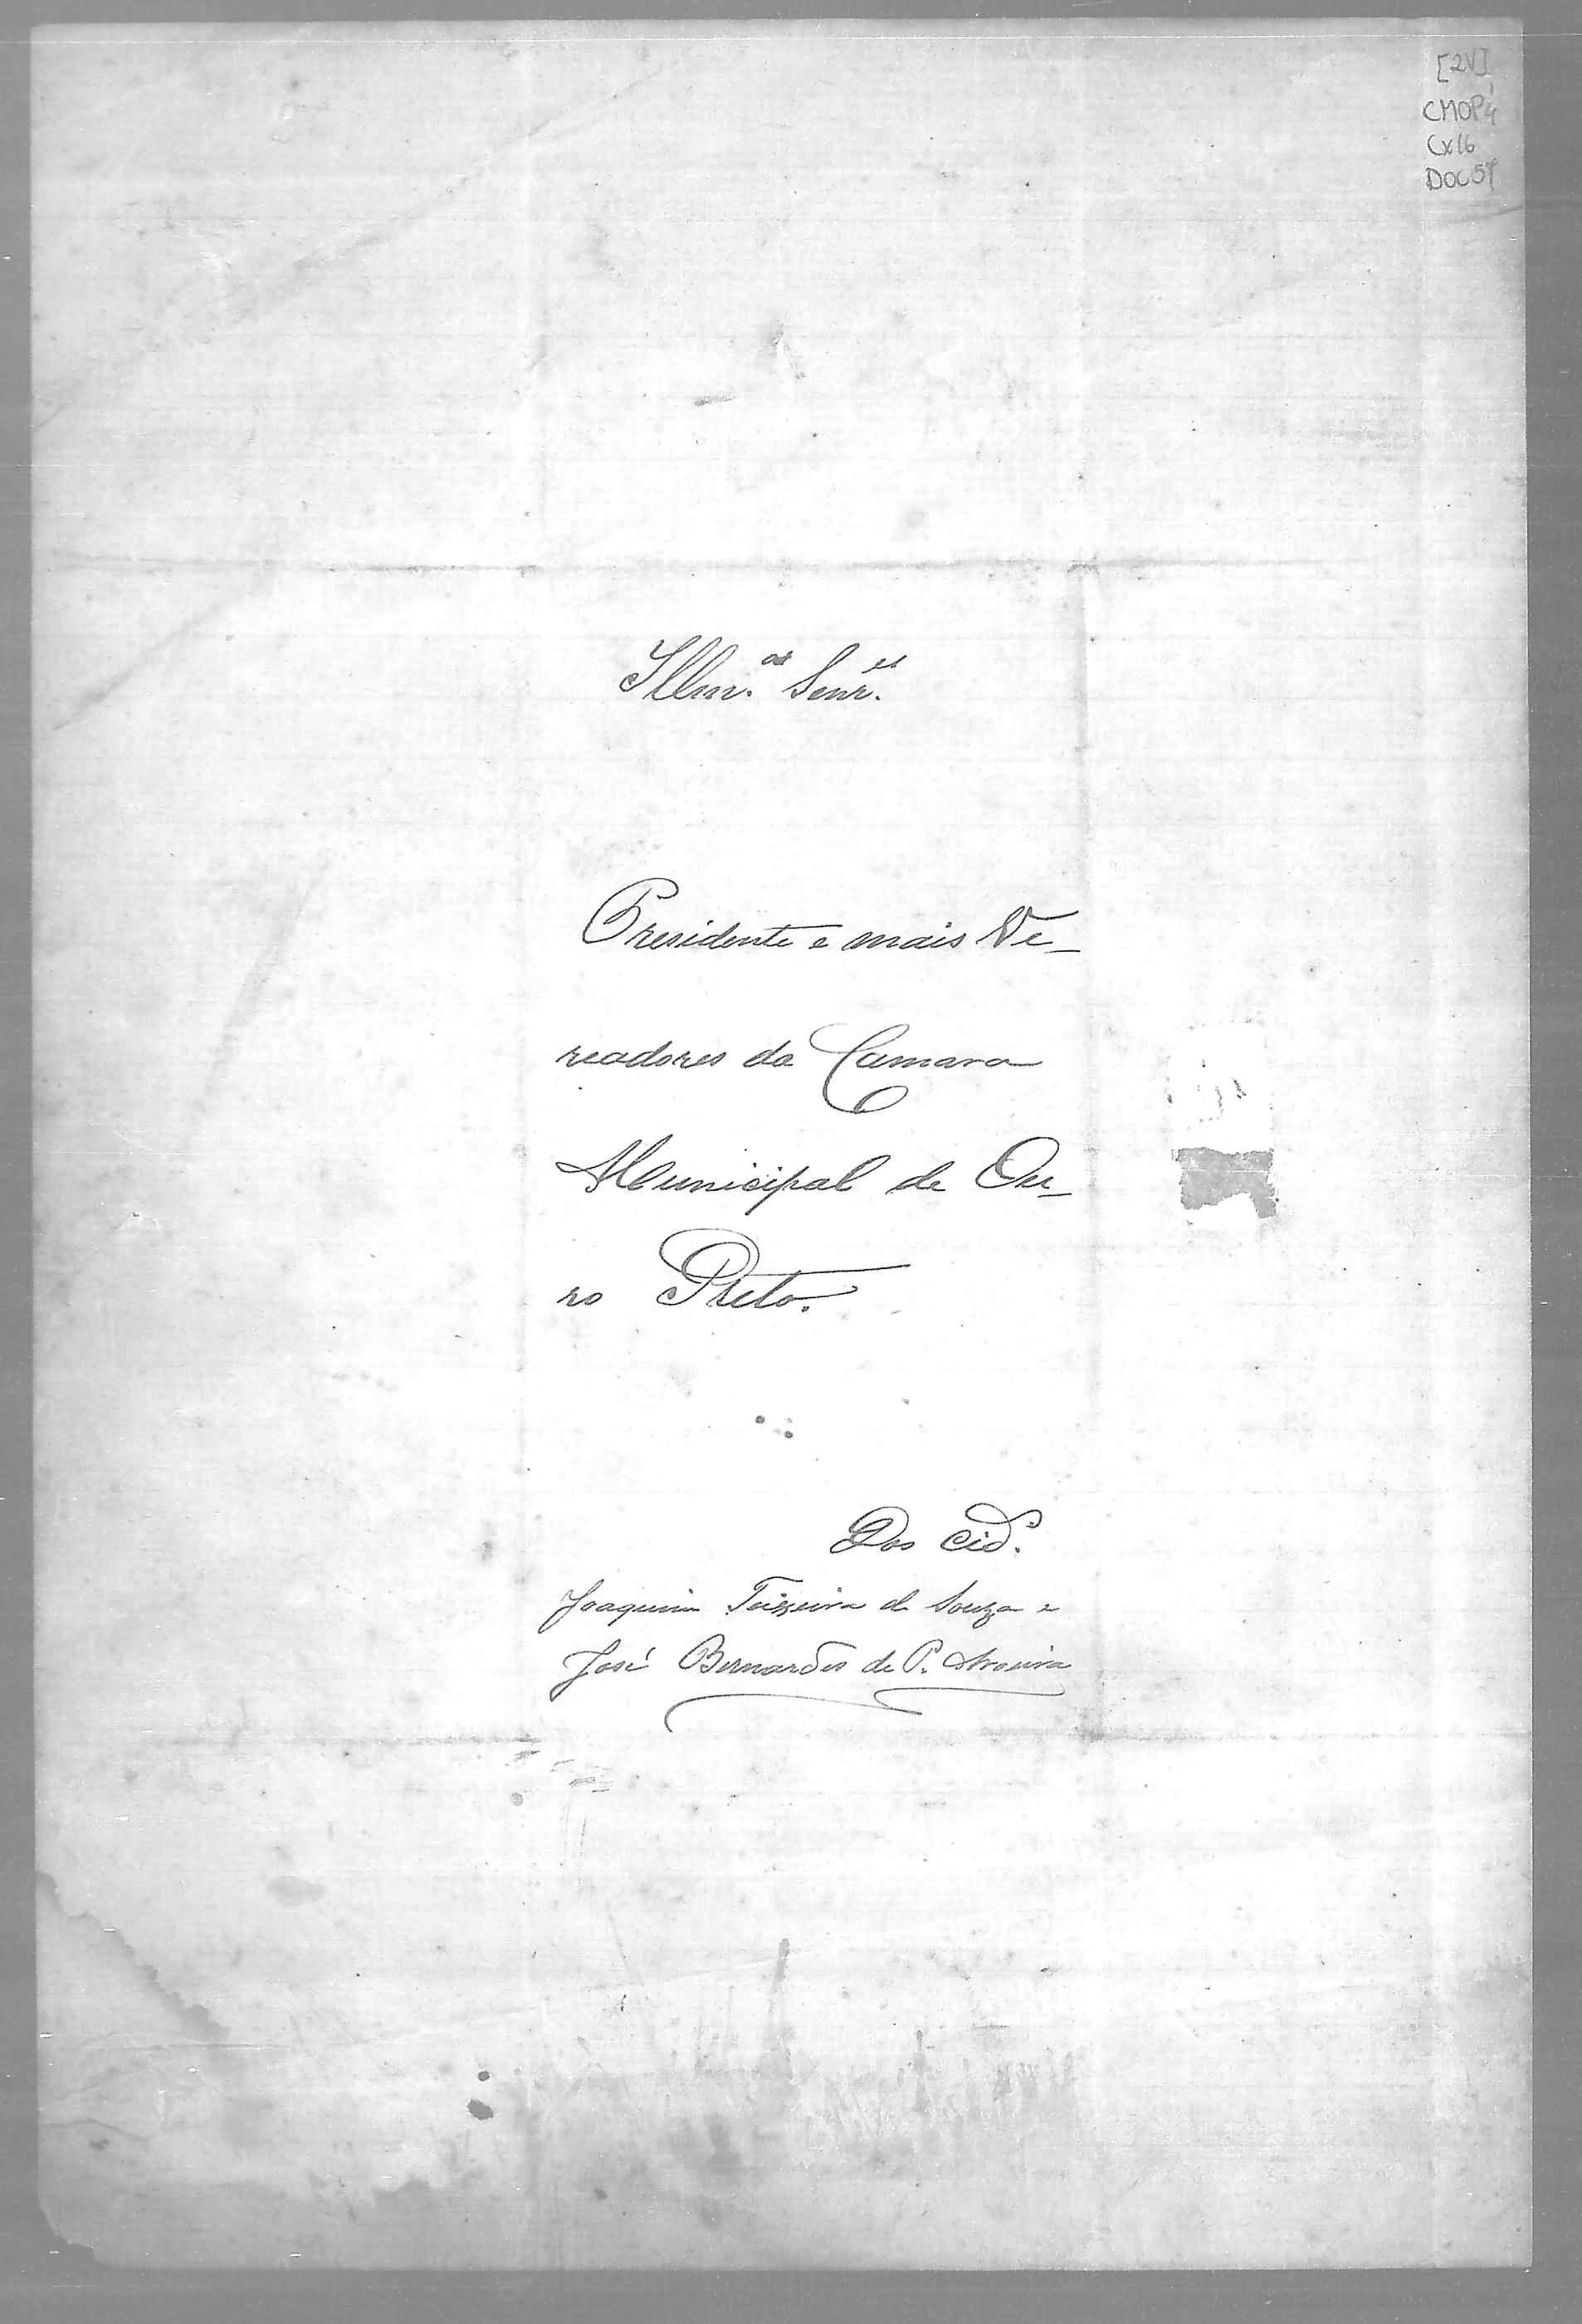 [2V]
CMOP4
Cx16
DOC57
Illm.os Senr.es
Presidente e mais Ve-
readores da Camara
Municipal de Ou-
ro Preto.
Dos Cid.
Joaquim Teixeira de Souza e
José Bernardes de P. Aroeira